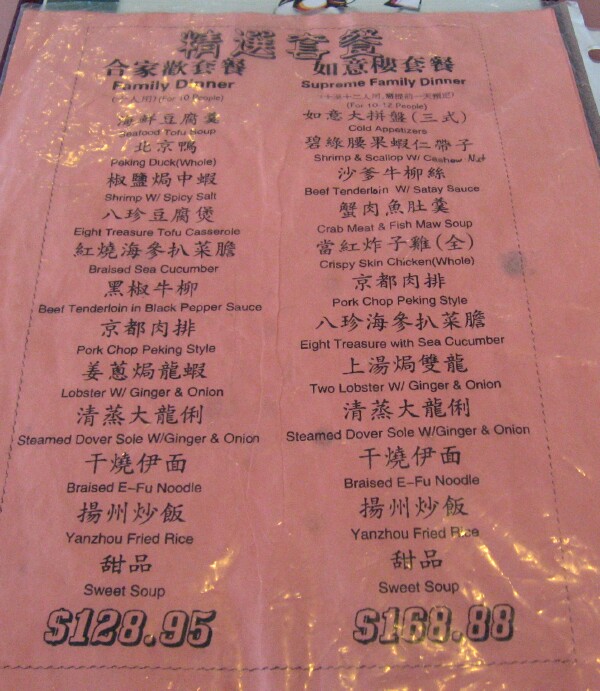 精選套餐
合家歡套餐
Family Dinner
(For 10 People)
海鮮豆腐羹
Seafood Tofu Soup
北京鴨
Peking Duck(Whole)
椒鹽焗中蝦
Shrimp W/ Spicy Salt
八珍豆腐煲
Eight Treasure Tofu Casserole
紅燒海參扒菜膽
Braised Sea Cucumber
黑椒牛柳
Beef Tenderloin in Black Pepper Sauce
京都肉排
Pork Chop Peking Style
姜蔥焗龍蝦
Lobster W/ Ginger & Onion
清蒸大龍俐
Steamed Dover Sole W/Ginger & Onion
干燒伊面
Braised E-Fu Noodle
揚州炒飯
Yanzhou Fried Rice
甜品
Sweet Soup
$128.95
如意樓套餐
Supreme Family Dinner
(For 10-12 People)
如意大拼盤(三式)
Cold Appetizers
碧綠腰果蝦仁帶子
Shrimp & Scallop W/ Cashew Nut
沙爹牛柳絲
Beef Tenderloin W/ Satay Sauce
蟹肉魚肚羹
Crab Meat & Fish Maw Soup
當紅炸子雞(全)
Crispy Skin Chicken(Whole)
京都肉排
Pork Chop Peking Style
八珍海參扒菜膽
Eight Treasure with Sea Cucumber
上湯焗雙龍
Two Lobster W/ Ginger & Onion
清蒸大龍俐
Steamed Dover Sole W/Ginger & Onion
干燒伊面
Braised E-Fu Noodle
揚州炒飯
Yanzhou Fried Rice
甜品
Sweet Soup
$168.88